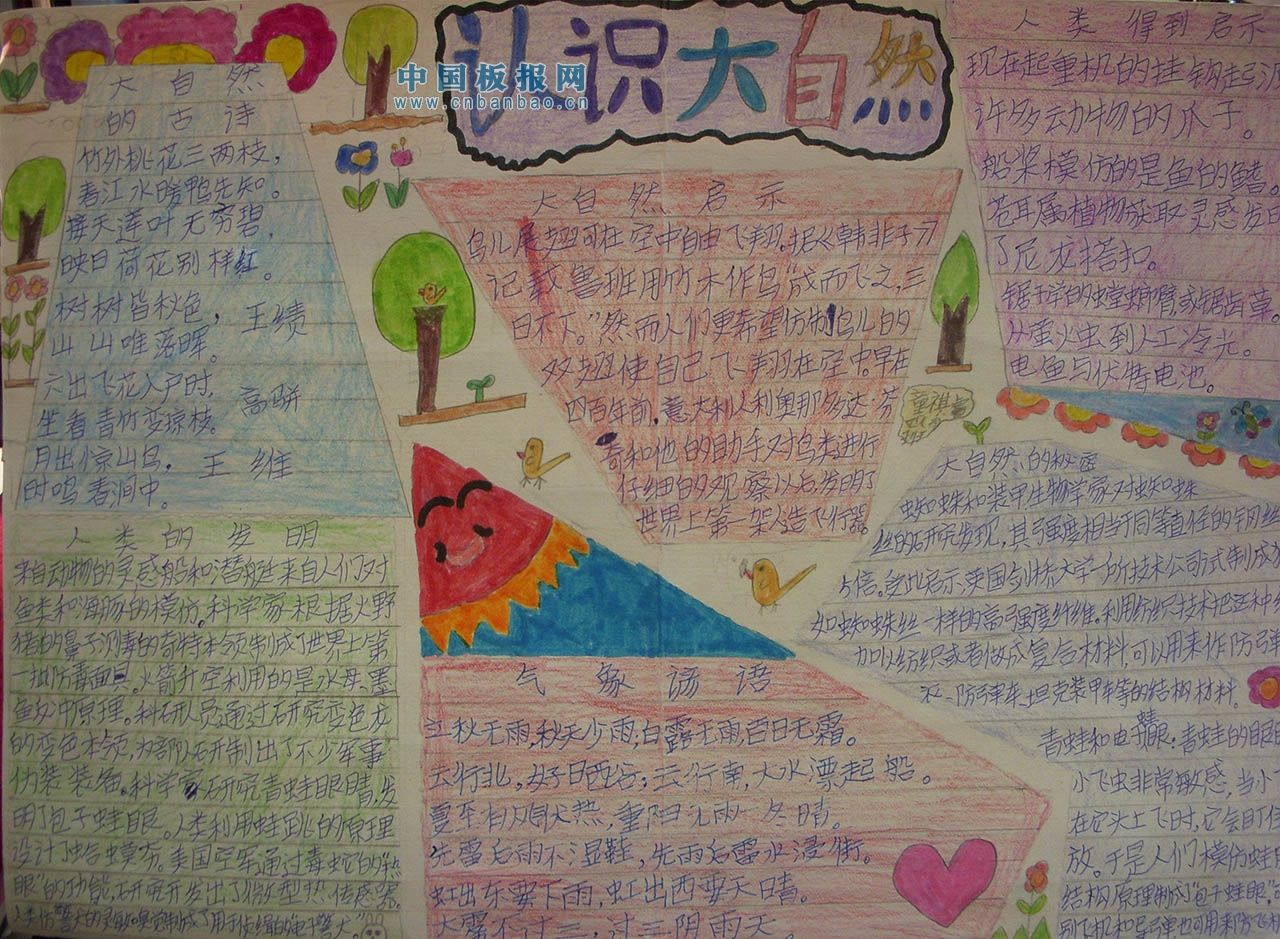 认识大自然
中国板报网
www.cnbanbao.cn
大自然
的古诗
竹外桃花三两枝，
春江水暖鸭先知。
接天莲叶无穷碧，
映日荷花别样红。
树树皆秋色， 王绩
山山唯落晖。
六出飞花入户时， 高骈
坐看青竹变琼枝。
月出惊山鸟， 王维
时鸣春涧中。
人类的发明
来自动物的灵感船和潜艇来自人们对
鱼类和海豚的模仿。科学家根据火野
猪的鼻子测毒的奇特本领制成了世界上第
一批防毒面具。火箭升空利用的是水母、墨
鱼反冲原理。科研人员通过研究变色龙
的变色本领，为部队研制出了不少军事
伪装装备。科学家研究青蛙眼睛，发
明了电子蛙眼。人类利用蛙跳的原理
设计了蛤蟆夯。美国空军通过毒蛇的“热
眼”的功能，研究开发出了微型热传感器。
人类仿警犬的灵敏嗅觉制成了用于侦缉的“电子警犬”
大自然启示
鸟儿展翅可在空中自由飞翔。据《韩非子》
记载鲁班用竹木作鸟“成而飞之，三
日不下。”然而人们更希望仿制鸟儿的
双翅使自己飞翔在空中。早在
四百年前，意大利人利奥那多达·芬
奇和他的助手对鸟类进行
仔细的观察以后发明了
世界上第一架人造飞行器。
气象谚语
立秋无雨，秋天少雨；白露无雨，百日无霜。
云行北，好日晒谷；云行南，大水漂起船。
夏至有风三伏热，重阳无雨一冬晴。
先雷后雨不湿鞋，先雨后雷水浸街。
虹出东要下雨，虹出西要天晴。
大雾不过三，过三阴雨天
人类得到启示
现在起重机的挂钩起源
许多动物的爪子。
船桨模仿的是鱼的鳍。
苍耳属植物获取灵感发明
了尼龙搭扣。
锯子学的螳螂臂，或锯齿草。
从萤火虫到人工冷光。
电鱼与伏特电池。
大自然的秘密
蜘蛛和装甲生物学家对蜘蛛
丝的研究发现，其强度相当同等直径的钢丝
5倍。受此启示，英国剑桥大学一所技术公司试制成
如蜘蛛丝一样的高强度纤维。利用纺织技术把这种
加以纺织或者做成复合材料，可以用来作防弹
衣、防弹车、坦克装甲车等的结构材料。
青蛙和电子蛙眼：青蛙的眼
小飞虫非常敏感，当小
在它头上飞时，它会盯住
放。于是人们模仿蛙
结构原理制成了“电子蛙眼”，
别飞机和导弹也可用来防飞机